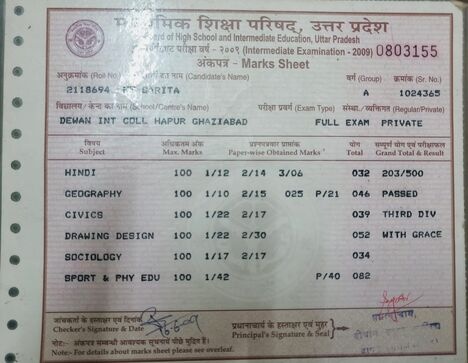 माध्यमिक शिक्षा परिषद, उत्तर प्रदेश
Board of High School and Intermediate Education, Uttar Pradesh
परीक्षा वर्ष - २००९ (Intermediate Examination - 2009) 0803155
अंकपत्र - Marks Sheet
अनुक्रमांक (Roll No.) का नाम (Candidate's Name) वर्ग (Group) क्रमांक (Sr. No.)
2118694 SARITA A 1024365
विद्यालय/ केन्द्र का नाम (School/Centre's Name) परीक्षा प्रकार (Exam Type) संस्था./ व्यक्तिगत (Regular/Private)
DEWAN INT COLL HAPUR GHAZIABAD FULL EXAM PRIVATE
विषय अधिकतम अंक प्रश्नपत्रवार प्राप्तांक योग सम्पूर्ण योग एवं परीक्षाफल
Subject Max. Marks Paper-wise Obtained Marks Total Grand Total & Result
HINDI 100 1/12 2/14 3/06 032 203/500
GEOGRAPHY 100 1/10 2/15 025 P/21 046 PASSED
CIVICS 100 1/22 2/17 039 THIRD DIV
DRAWING DESIGN 100 1/22 2/30 052 WITH GRACE
SOCIOLOGY 100 1/17 2/17 034
SPORT & PHY EDU 100 1/42 P/40 082
जांचकर्ता के हस्ताक्षर एवं दिनांक
Checker's Signature & Date
प्रधानाचार्य के हस्ताक्षर एवं मुहर
Principal's Signature & Seal
नोट:- अंकपत्र सम्बन्धी आवश्यक सूचनायें पीछे मुद्रित हैं।
Note:- For details about marks sheet please see overleaf.